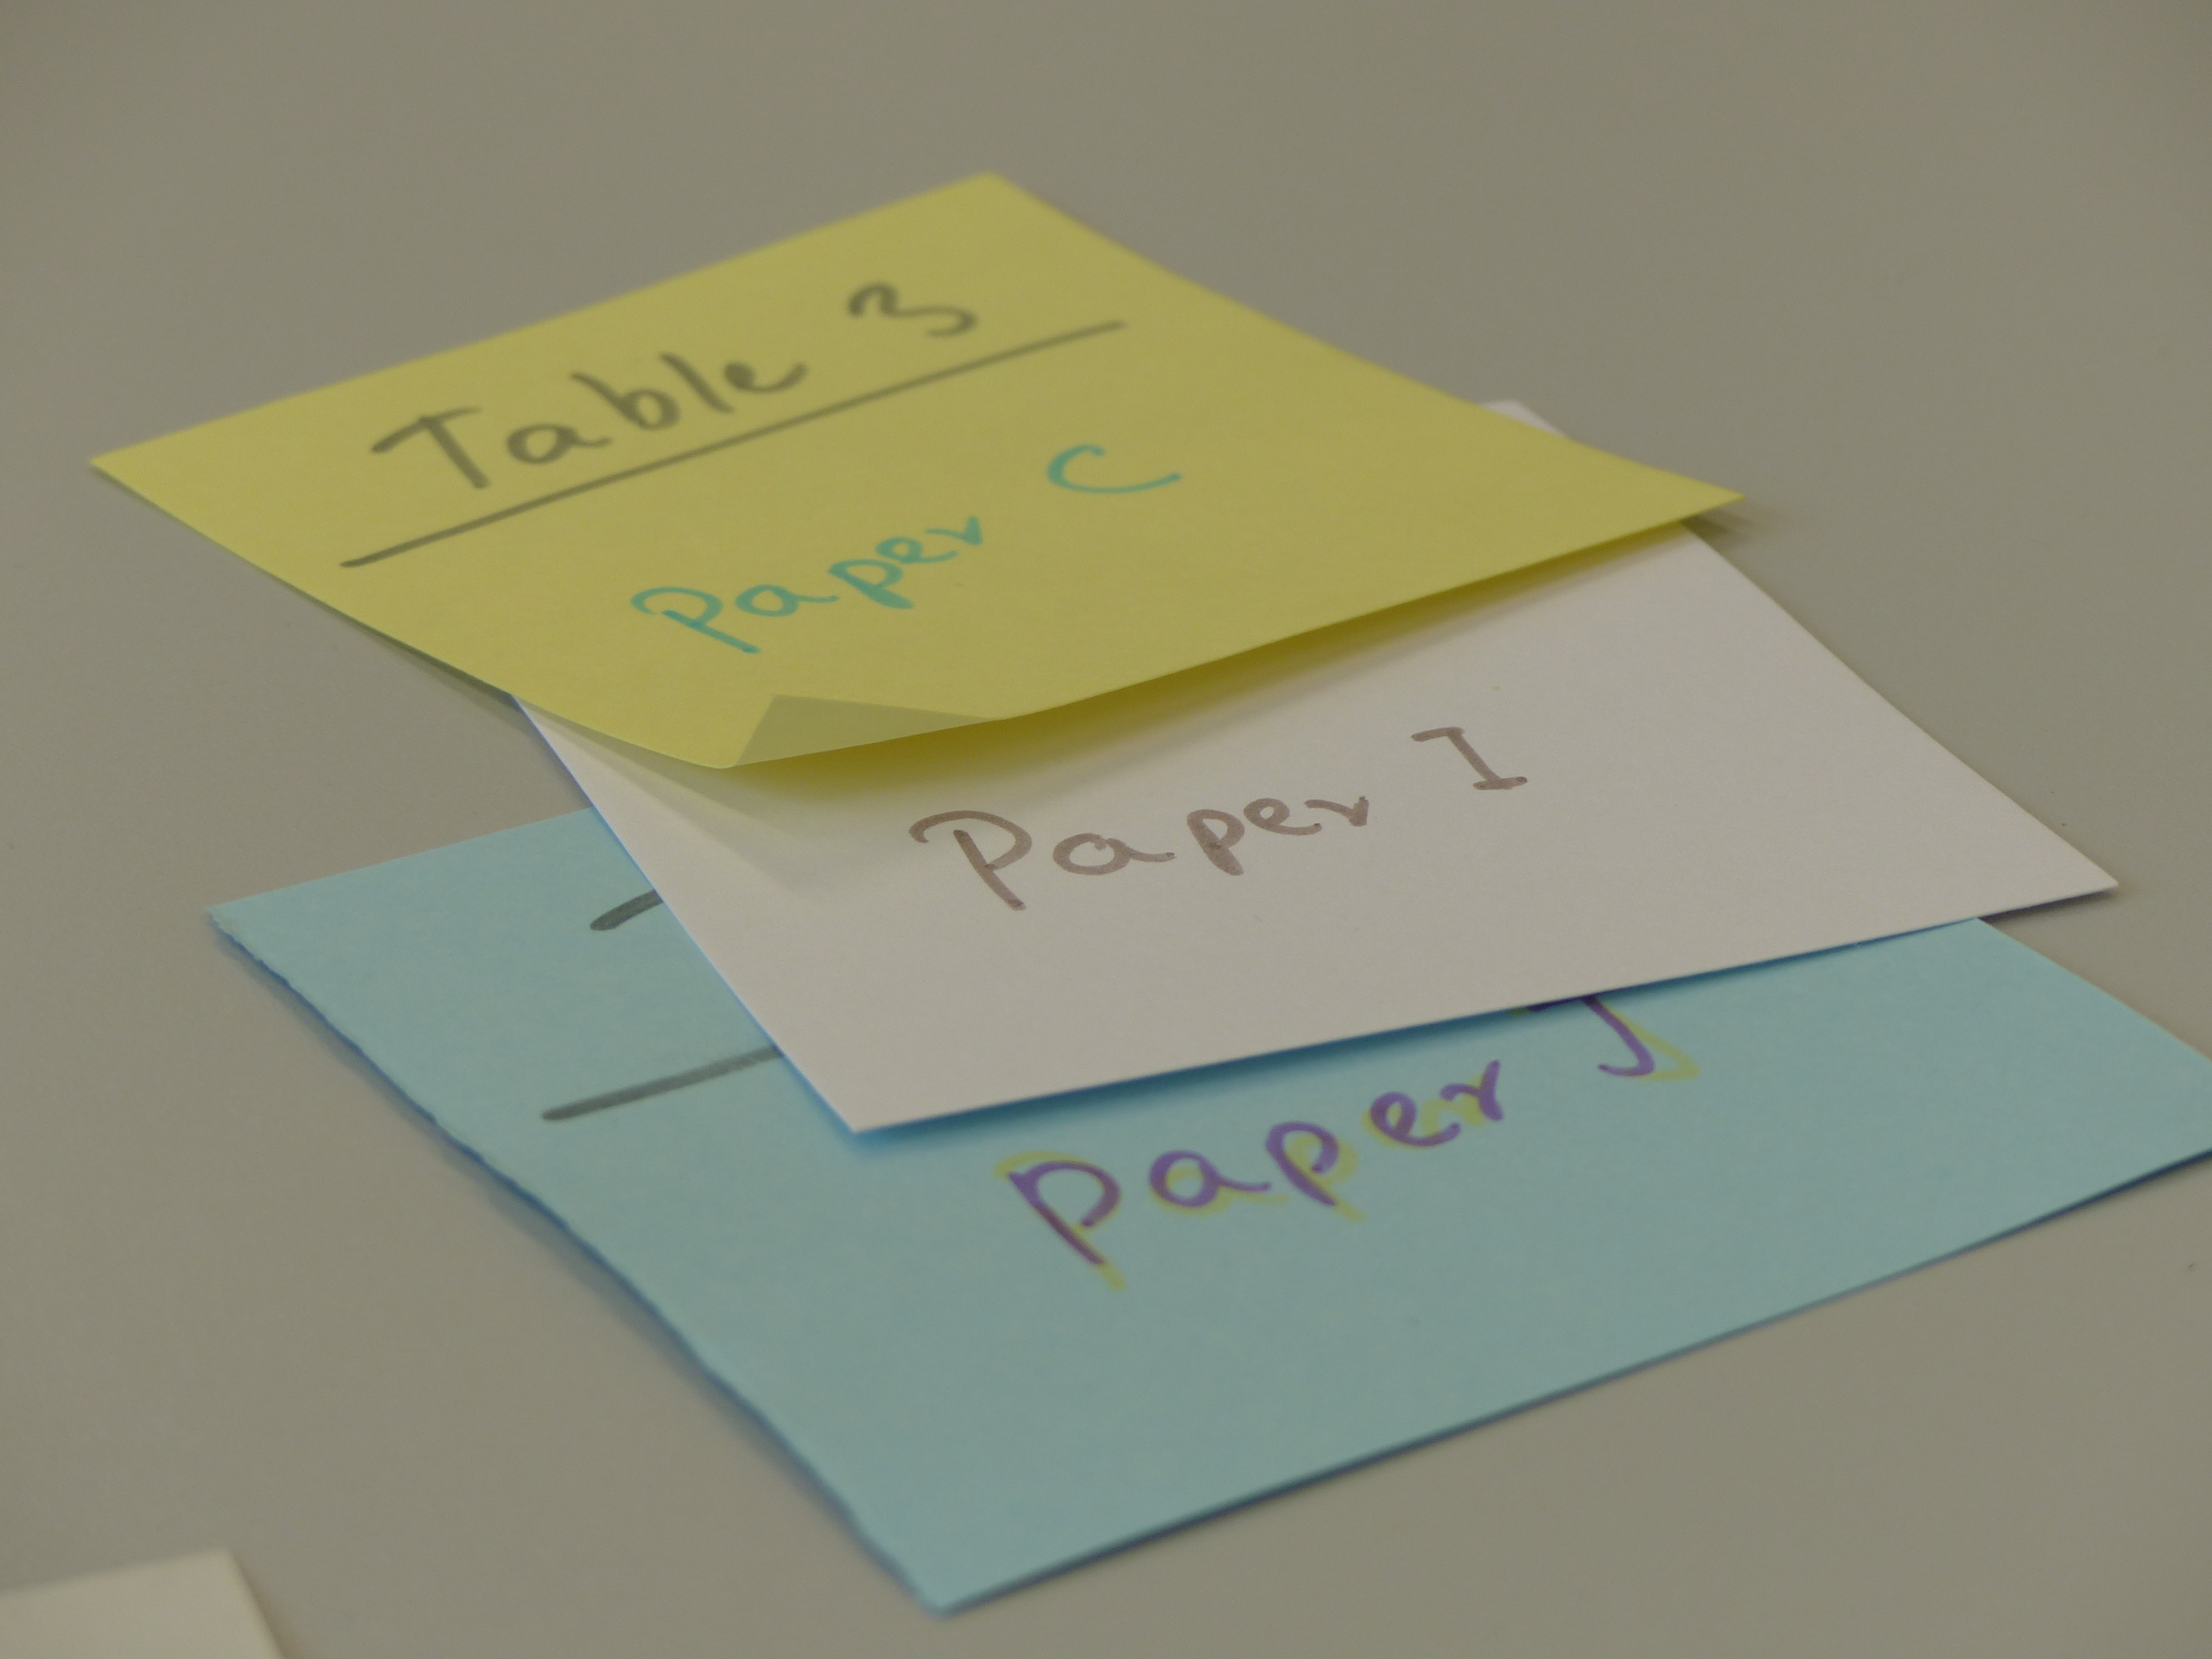 Table 3
Paper C
Paper I
Paper J